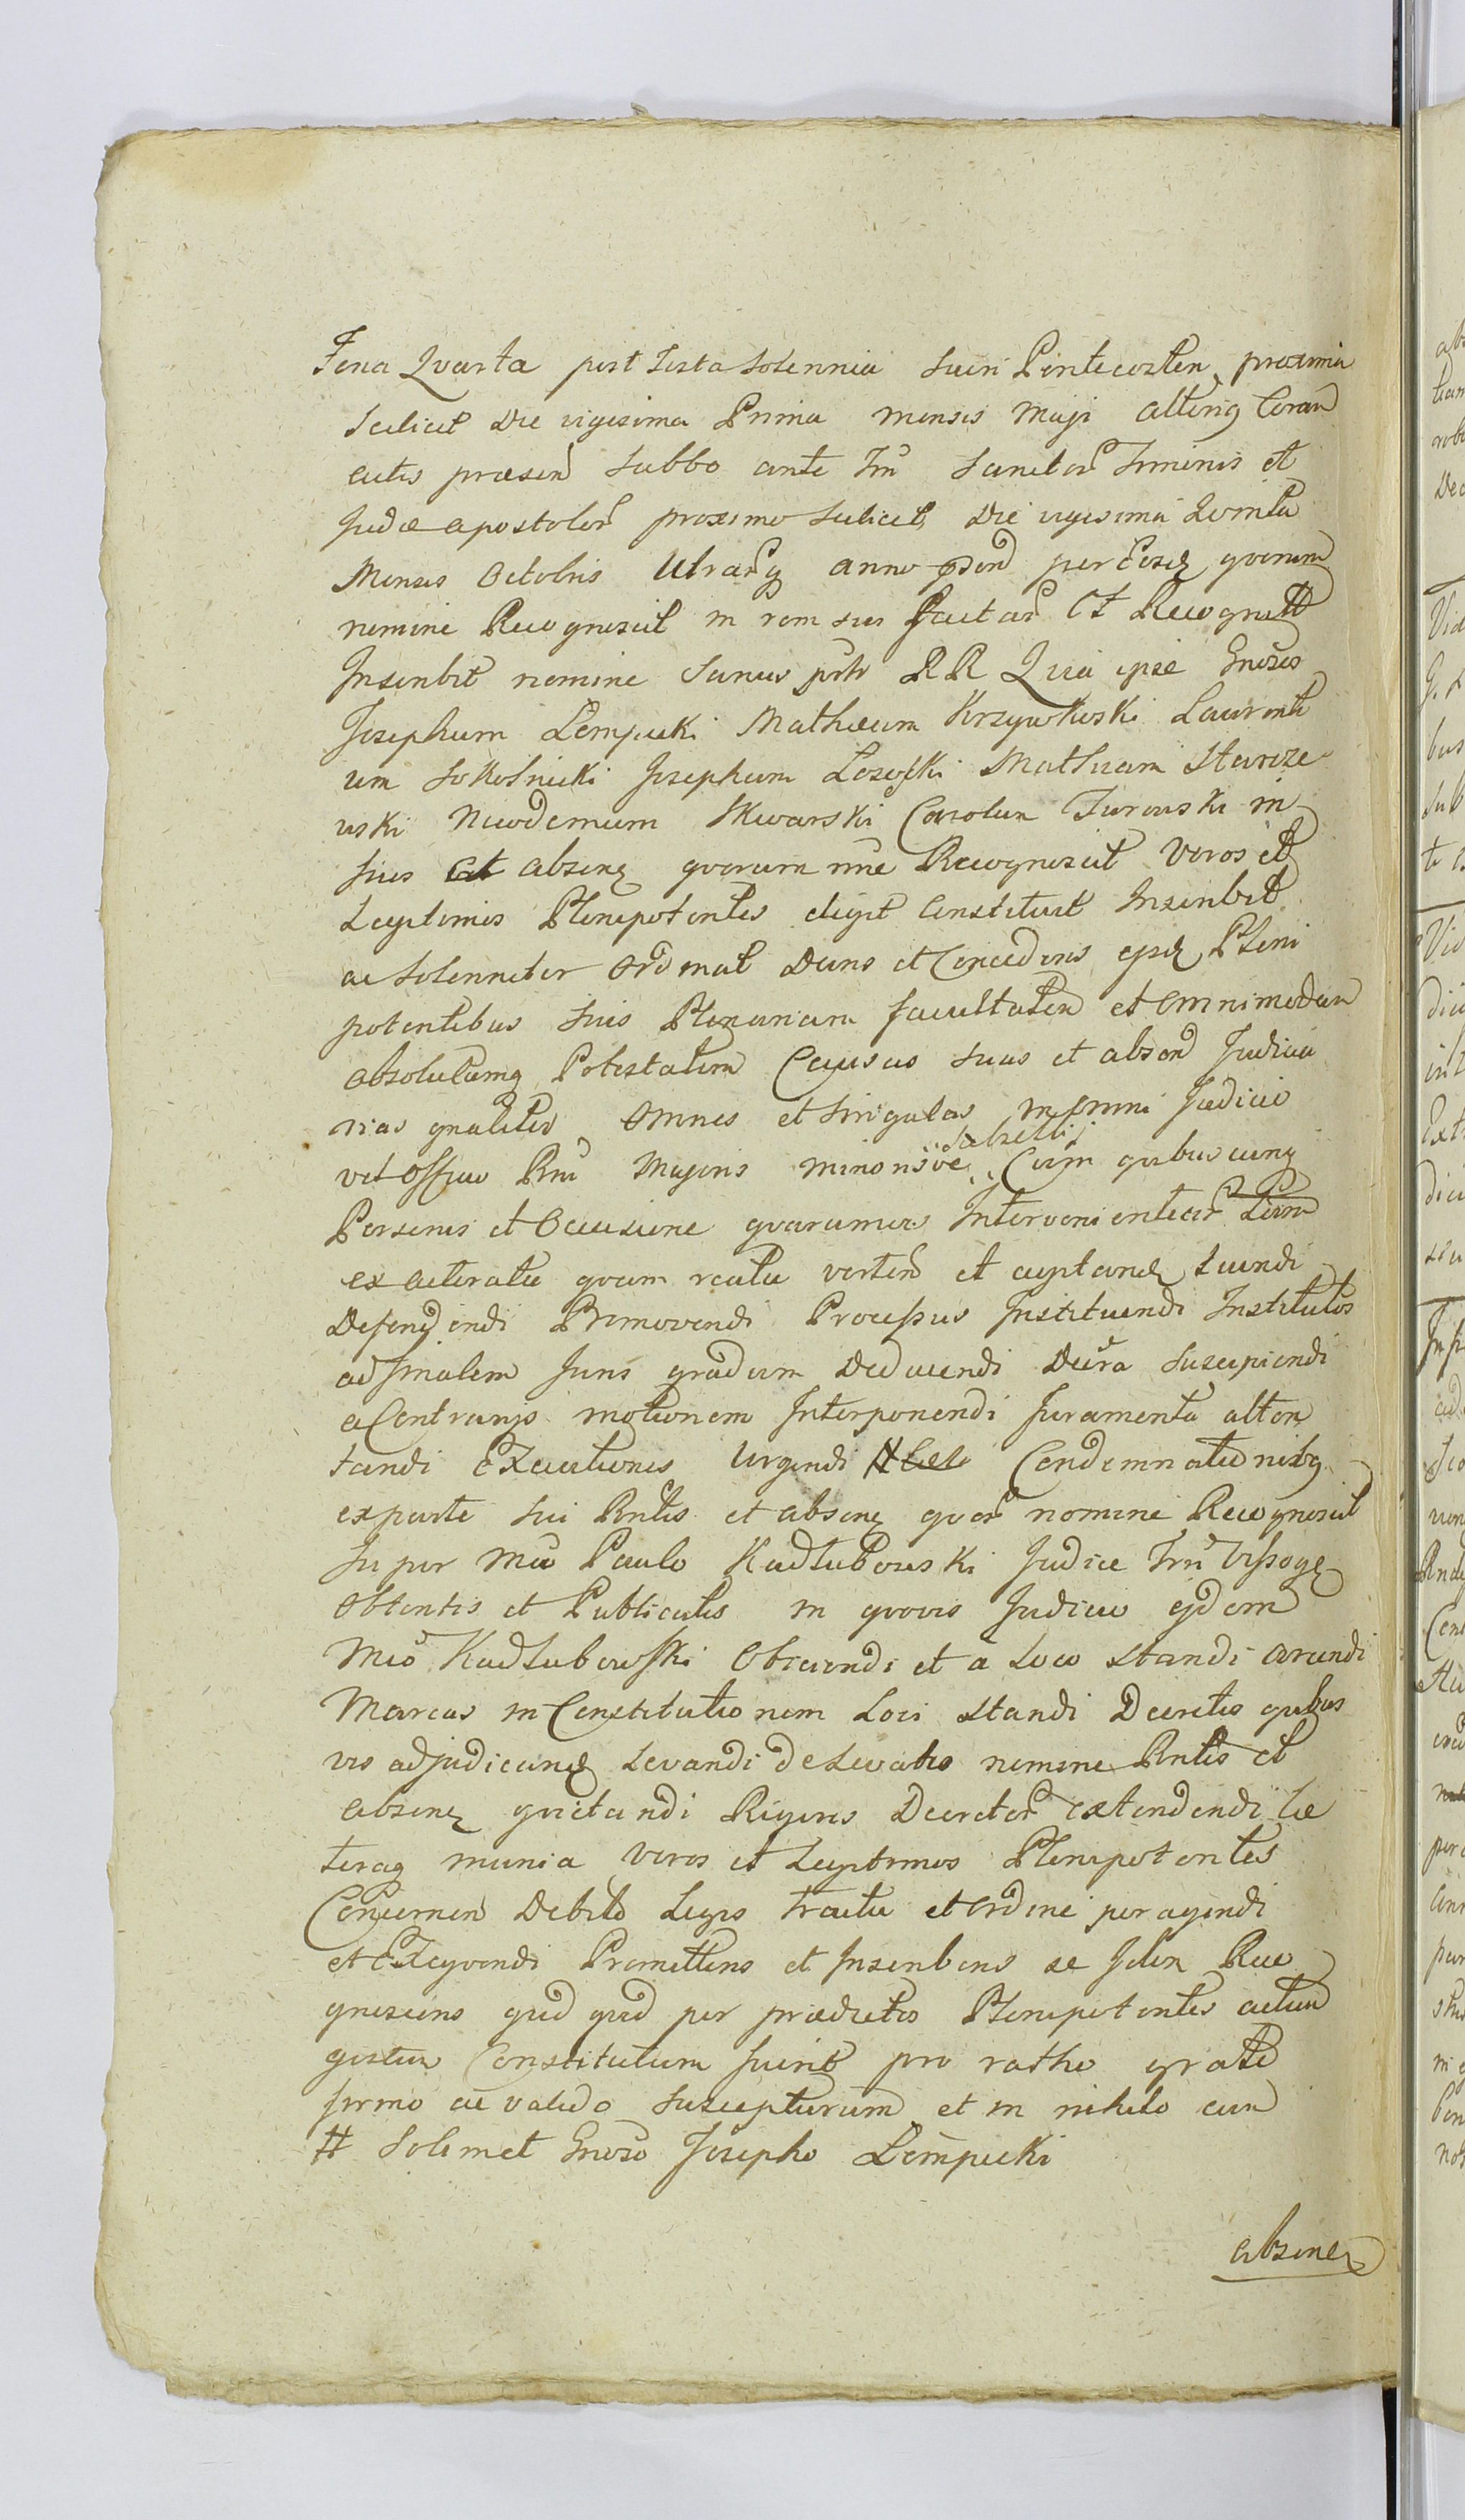 Feria Qvarta post Festa Solennia Sacri Pentecosten proxima
Scilicet Die vigesima Prima mensis Maji alteriq Coram
actis præsen Sabbo ante Fm Sanctor Simonis et
Judæ apostolor proximo Scilicet Die vigesima Qvinta
Mensis Octobris Utrarq anno psend per eosq qvorum
nomine Recognoscit in rem sui factar Et Recognitt
Inscribit nomine Sanus RR Qvia ipse Gnosos
Josephum Lempicki Mathæum Krzywkoski Laurenti
um Sokolnicki Josephum Lososki Mathiam Starcze
wski Nicodemum Skwarski Carolum Turowski in
sius et absenq qvorum nne Recognoscit Veros et
Legitimos Plenipotentes eligit Constituit Inscribit
ac Solenniter Ordinat Dans et Concedens ejsq Pleni
potentibus suis Plenariam facultatem et omnimodam
absolutamq Potestatem Causas suas et absend Judicia
rias gnaliter Omnes et Singulas in omni Judicio
vel Officio Rni Majoris minorisve Subsellij Cum qvibuscunq
Personis et Occasione qvarumvis Intervenientear
ex acteratu qvam reatu verten et agitandq tuendi
Defendendi Promovendi Processus Instituendi Institutos
ad finalem Juris gradum Deducendi Decra Suscipiendi
a Contrarijs motionem Interponendi Juramenta atten
tandi Executiones Urgendi # Condemnationibq
ex parte sui Rntis et absenq qvor nomine Recognoscit
Super Mco Paulo Kadlubowski Judice Trri Vissogq
Obtentis et Publicatis in qvovis Judicio ejdem
Mco Kadlubowski Obiciendi et a Loco Standi arcendi
Marcas in Constitutionem Loci Standi Decretis qvibus
vis adjudicandq Levandi de Levatis nomine Rntis et
absenq qvietandi Rigores Decretor extendendi Cæ
teraq munia Veros et Legitimos Plenipotentes
Concernen Debito Legis tractu et ordine peragendi
et Exeqvendi Promittens et Inscribens se Idem Reco
gnoscens qvid qvid per prædictos Plenipotentes actum
gestum Constitutum fuerit pro ratho grato
firmo ac valido Suscepturum et in nihilo eum
# Solemet Gnoso Josepho Lempicki
absenq